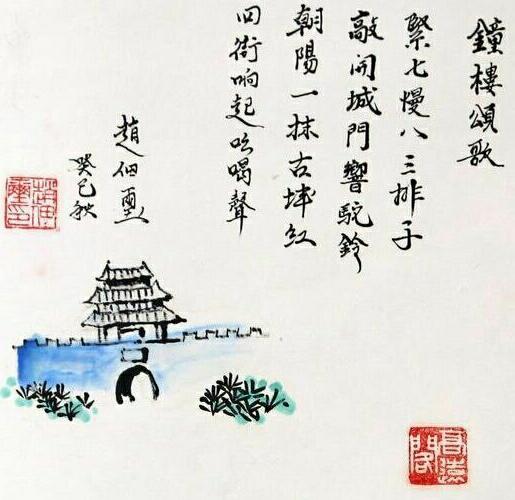 鐘樓頌歌
緊七慢八三排子
敲開城門響駝鈴
朝陽一抹古城紅
四街响起吆喝聲
趙佃璽
癸巳秋